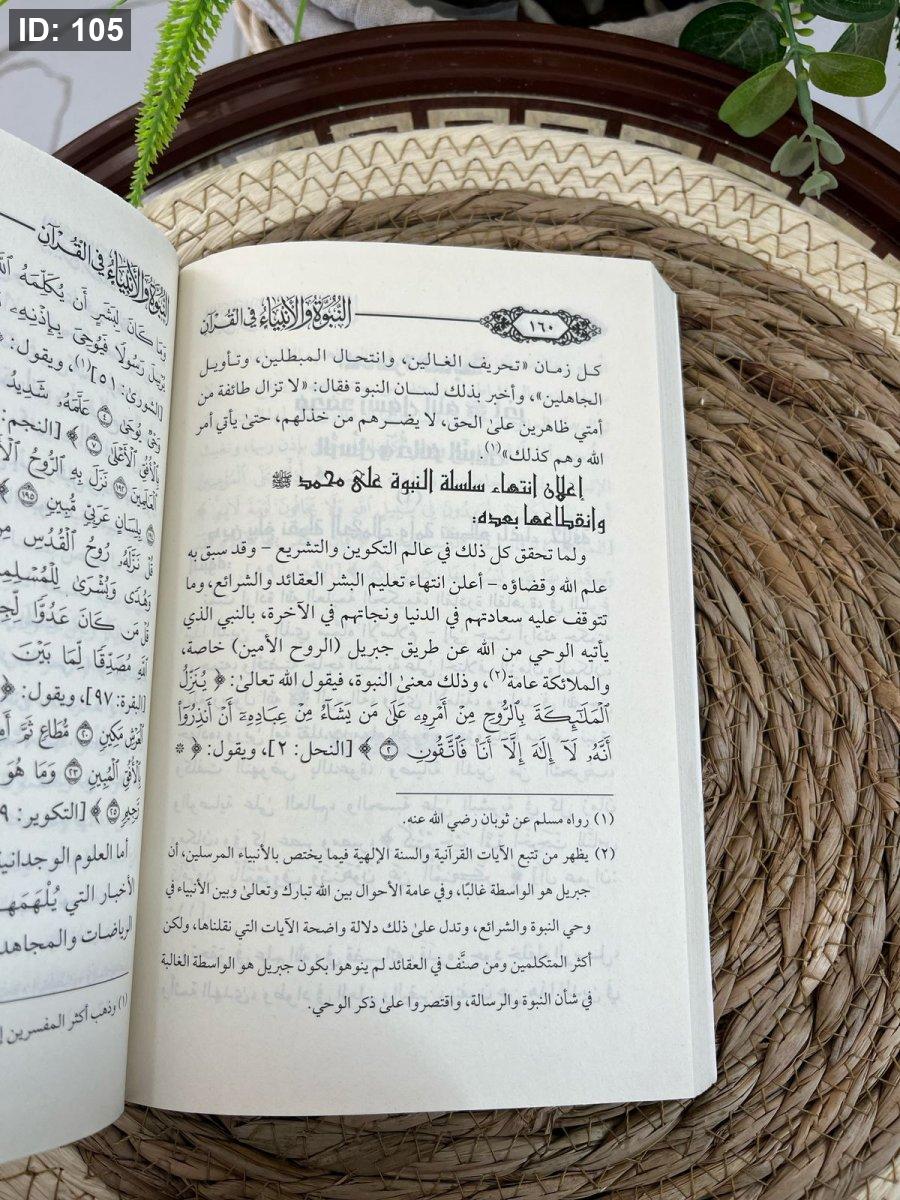 ID: 105
١٦٠
النبوة والأنبياء في القرآن
كل زمان «تحريف الغالين، وانتحال المبطلين، وتأويل
الجاهلين»، وأخبر بذلك لسان النبوة فقال: «لا تزال طائفة من
أمتي ظاهرين على الحق، لا يضرهم من خذلهم، حتى يأتي أمر
الله وهم كذلك»(١).
إعلان انتهاء سلسلة النبوة على محمد ﷺ
وانقطاعها بعده:
ولما تحقق كل ذلك في عالم التكوين والتشريع – وقد سبق به
علم الله وقضاؤه – أعلن انتهاء تعليم البشر العقائد والشرائع، وما
تتوقف عليه سعادتهم في الدنيا ونجاتهم في الآخرة، بالنبي الذي
يأتيه الوحي من الله عن طريق جبريل (الروح الأمين) خاصة،
والملائكة عامة(٢)، وذلك معنى النبوة، فيقول الله تعالى: ﴿ يُنَزِّلُ
ٱلْمَلَٰٓئِكَةَ بِٱلرُّوحِ مِنْ أَمْرِهِۦ عَلَىٰ مَن يَشَآءُ مِنْ عِبَادِهِۦٓ أَنْ أَنذِرُوٓا۟
أَنَّهُۥ لَآ إِلَٰهَ إِلَّآ أَنَا۠ فَٱتَّقُونِ ٢ ﴾ [النحل: ٢]، ويقول: ﴿ *
(١) رواه مسلم عن ثوبان رضي الله عنه.
(٢) يظهر من تتبع الآيات القرآنية والسنة الإلهية فيما يختص بالأنبياء المرسلين، أن
جبريل هو الواسطة غالبًا، وفي عامة الأحوال بين الله تبارك وتعالى وبين الأنبياء في
وحي النبوة والشرائع، وتدل على ذلك دلالة واضحة الآيات التي نقلناها، ولكن
أكثر المتكلمين ومن صنَّف في العقائد لم ينوهوا بكون جبريل هو الواسطة الغالبة
في شأن النبوة والرسالة، واقتصروا على ذكر الوحي.
النبوة والأنبياء في القرآن
وَمَا كَانَ لِبَشَرٍ أَن يُكَلِّمَهُ ٱللَّهُ
يُرْسِلَ رَسُولًا فَيُوحِىَ بِإِذْنِهِۦ
[الشورى: ٥١](١)، ويقول: «
وَحْىٌ يُوحَىٰ ٤ عَلَّمَهُۥ شَدِيدُ
بِٱلْأُفُقِ ٱلْأَعْلَىٰ ٧ ﴾ [النجم:
ٱلْعَٰلَمِينَ ١٩٢ نَزَلَ بِهِ ٱلرُّوحُ
بِلِسَانٍ عَرَبِىٍّ مُّبِينٍ ١٩٥ ﴾
قُلْ نَزَّلَهُۥ رُوحُ ٱلْقُدُسِ مِن
وَهُدًى وَبُشْرَىٰ لِلْمُسْلِمِينَ
قُلْ مَن كَانَ عَدُوًّا لِّجِبْرِيلَ
ٱللَّهِ مُصَدِّقًا لِّمَا بَيْنَ
[البقرة: ٩٧]، ويقول: ﴿
ٱلْعَرْشِ مَكِينٍ ٢٠ مُّطَاعٍ ثَمَّ
بِٱلْأُفُقِ ٱلْمُبِينِ ٢٣ وَمَا هُوَ
رَّجِيمٍ ٢٥ ﴾ [التكوير:
أما العلوم الوجدانية
الأخبار التي يُلْهَمَها
الرياضات والمجاهد
(١) وذهب أكثر المفسرين